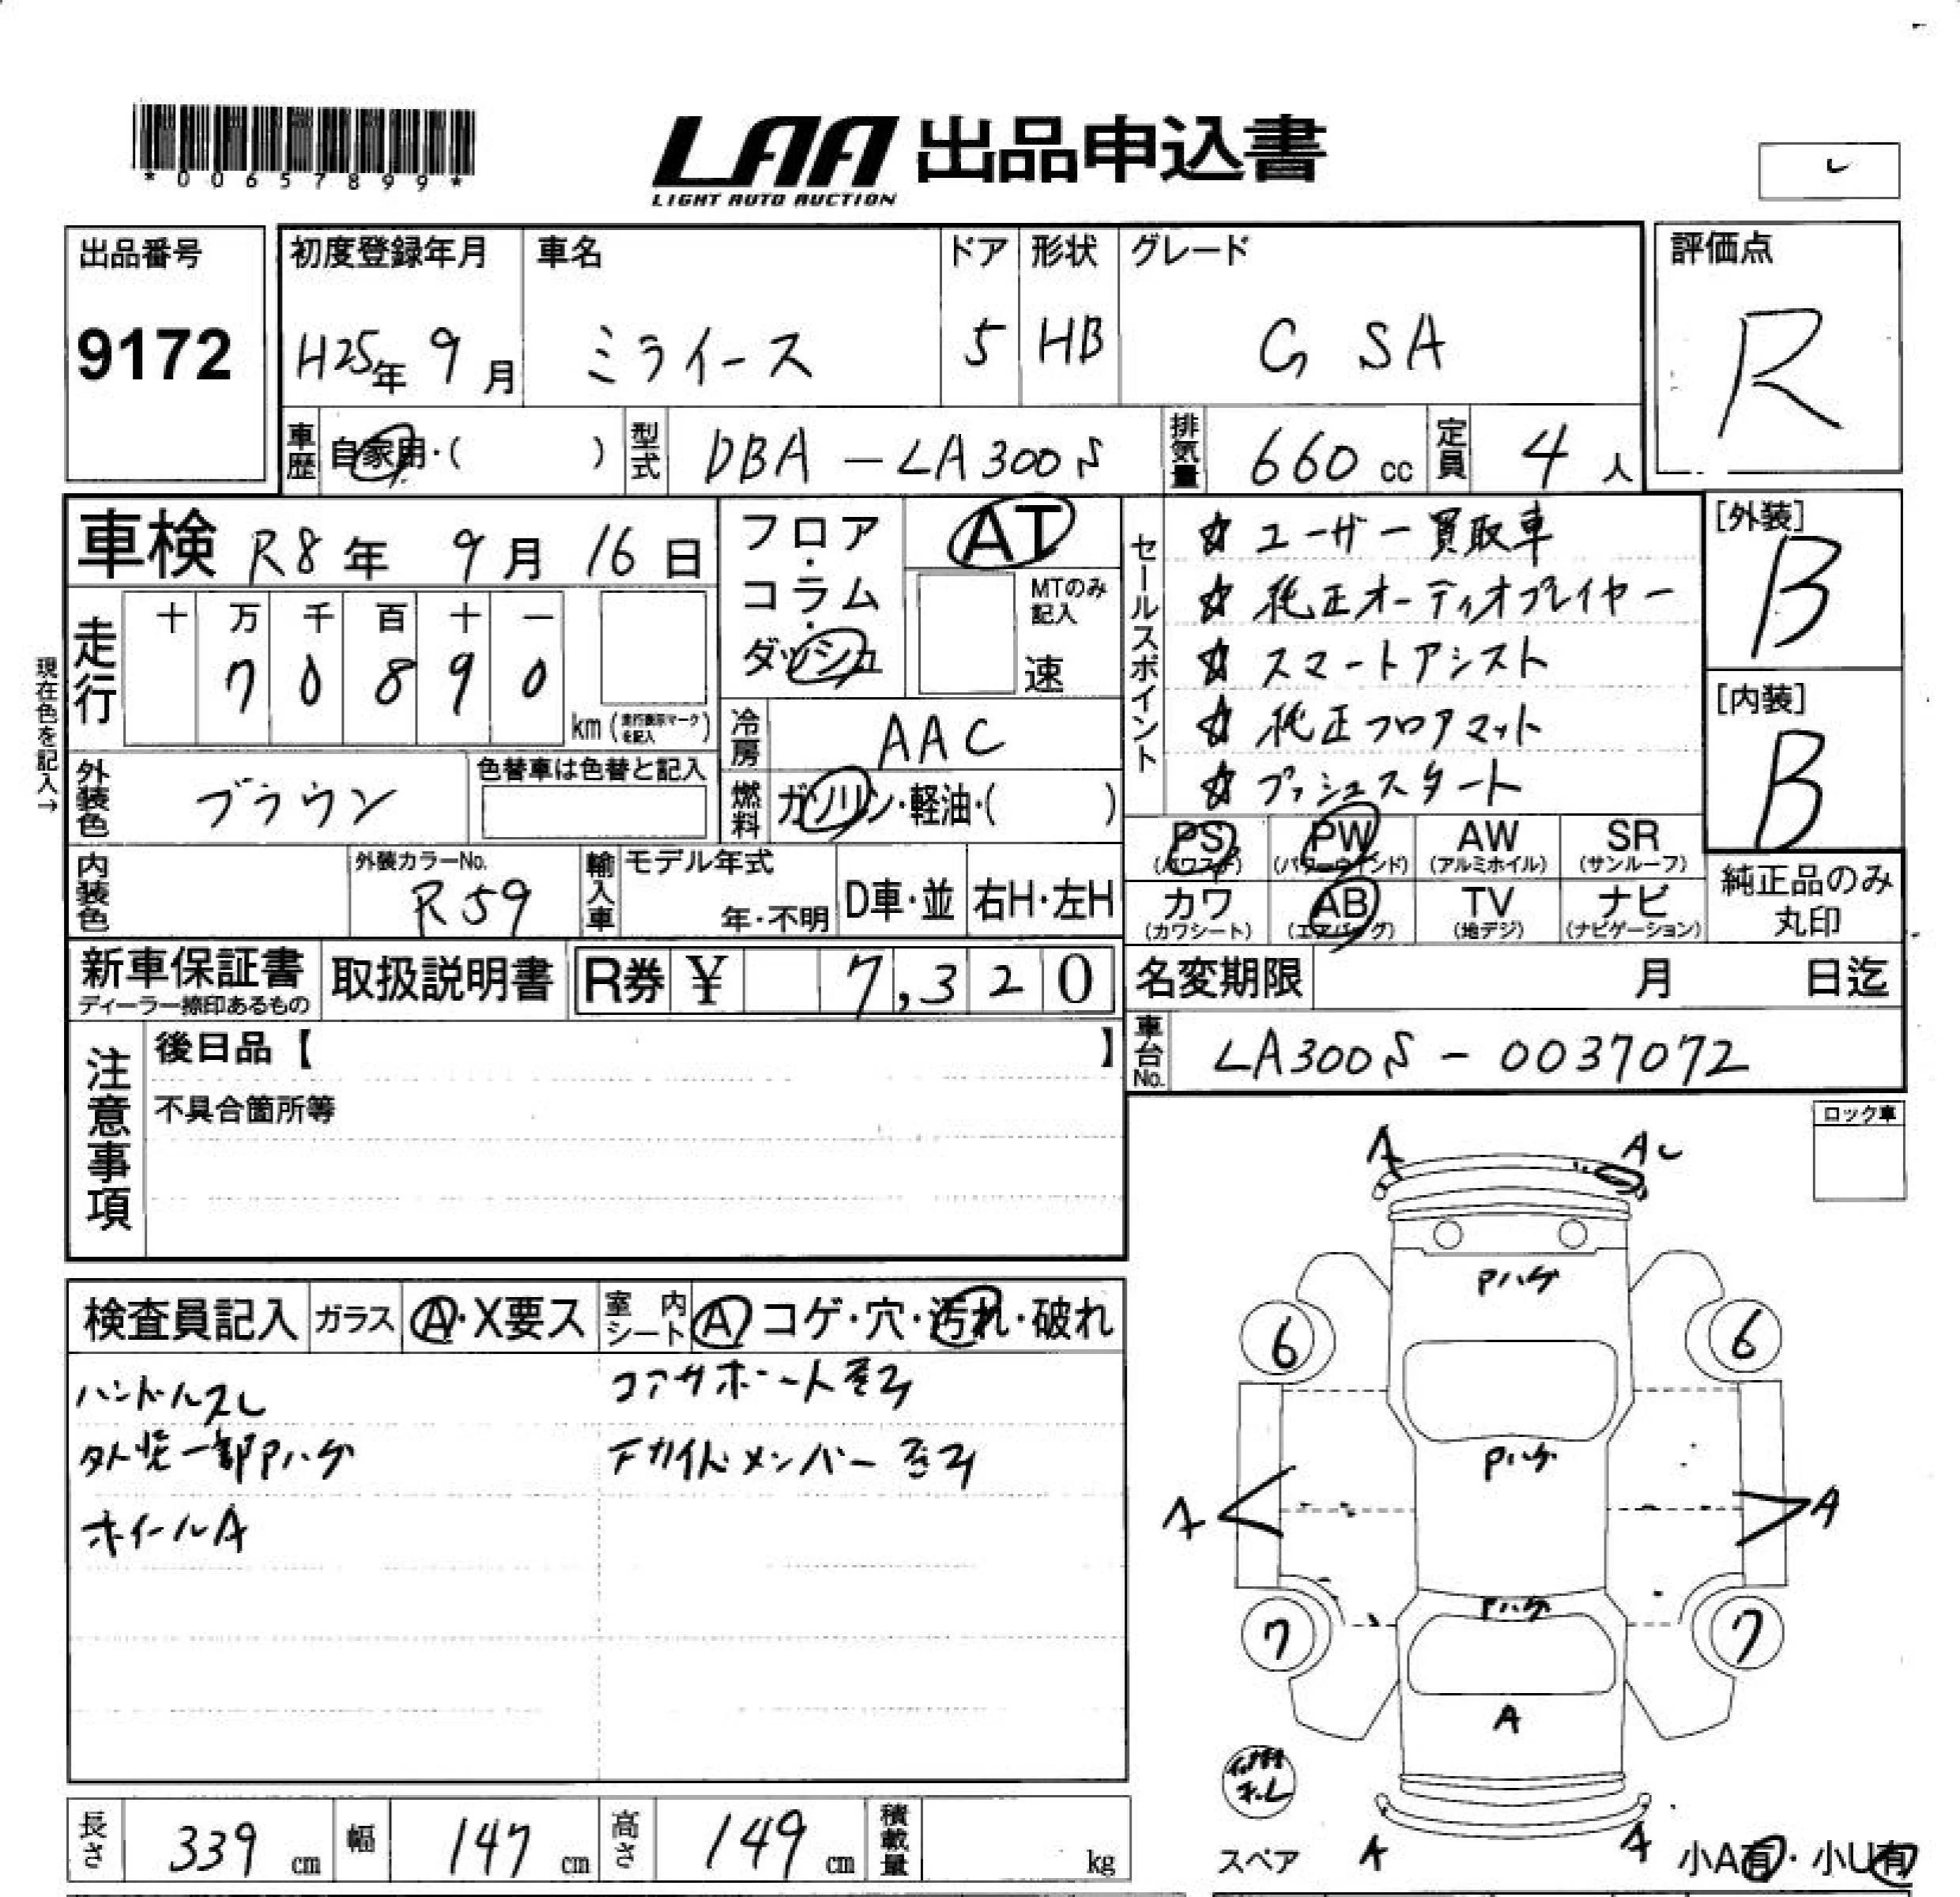 *00657899*
LAA 出品申込書
LIGHT AUTO AUCTION
出品番号
9172
初度登録年月
H25年 9月
車名
ミライース
ドア
5
形状
HB
グレード
G SA
評価点
R
車歴 自家用・( )
型式 DBA-LA300S
排気量 660 cc
定員 4 人
車検 R8年 9月 16日
現在色を記入→
走行 十 万 千 百 十 一
7 0 8 9 0
km (走行表示マークを記入)
フロア・コラム・ダッシュ
AT
MTのみ記入
速
冷房 AAC
燃料 ガソリン・軽油・( )
外装色 ブラウン
色替車は色替と記入
内装色
外装カラーNo.
R59
輸入車
モデル年式
年・不明
D車・並
右H・左H
セールスポイント
☆ ユーザー買取車
☆ 純正オーディオプレイヤー
☆ スマートアシスト
☆ 純正フロアマット
☆ プッシュスタート
[外装]
B
[内装]
B
PS (パワステ)
PW (パワーウインド)
AW (アルミホイル)
SR (サンルーフ)
カワ (カワシート)
AB (エアバッグ)
TV (地デジ)
ナビ (ナビゲーション)
純正品のみ
丸印
新車保証書
ディーラー捺印あるもの
取扱説明書
R券 ¥ 7,320
名変期限 月 日迄
車台No. LA300S-0037072
注意事項
後日品【 】
不具合箇所等
ロック車
検査員記入
ガラス A・X要ス
室内シート A コゲ・穴・汚れ・破れ
ハンドルスレ
外装一部Pハゲ
ホイールA
コアサポート歪み
下サイドメンバー歪み
A
A
Pハゲ
6
6
Pハゲ
A
A
Pハゲ
7
7
A
スペア
A
A
小A有・小U有
長さ 339 cm
幅 147 cm
高さ 149 cm
積載量 kg